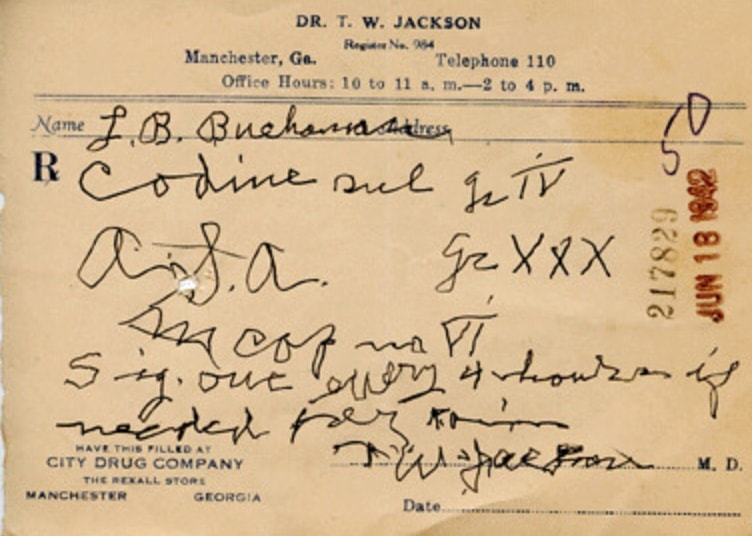 DR. T. W. JACKSON
Register No. 984
Manchester, Ga. Telephone 110
Office Hours: 10 to 11 a. m.—2 to 4 p. m.
Name L. B. Buchanan Address
50
℞ Codine sul gr IV
217829
JUN 18 1942
A.S.A. gr XXX
M cap no VI
Sig. one every 4 hours if
needed for pain
T W Jackson M. D.
HAVE THIS FILLED AT
CITY DRUG COMPANY
THE REXALL STORE
MANCHESTER GEORGIA
Date